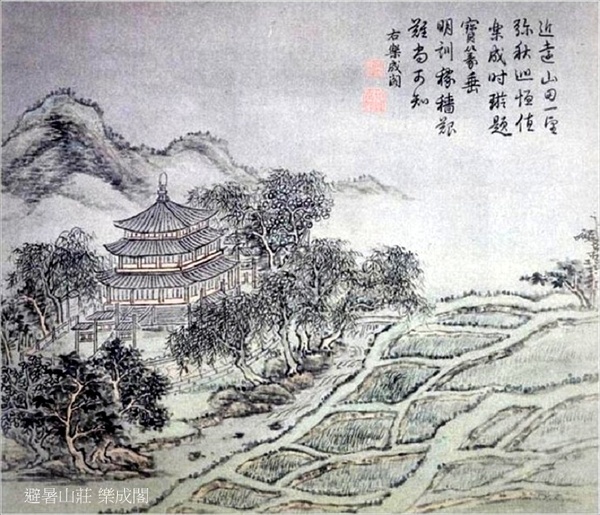 近遠山田一望
弥秋迆恒值
樂成时璇題
寶篆垂
明訓稼穡艱
難尚可知
右樂成閣
避暑山莊 樂成閣